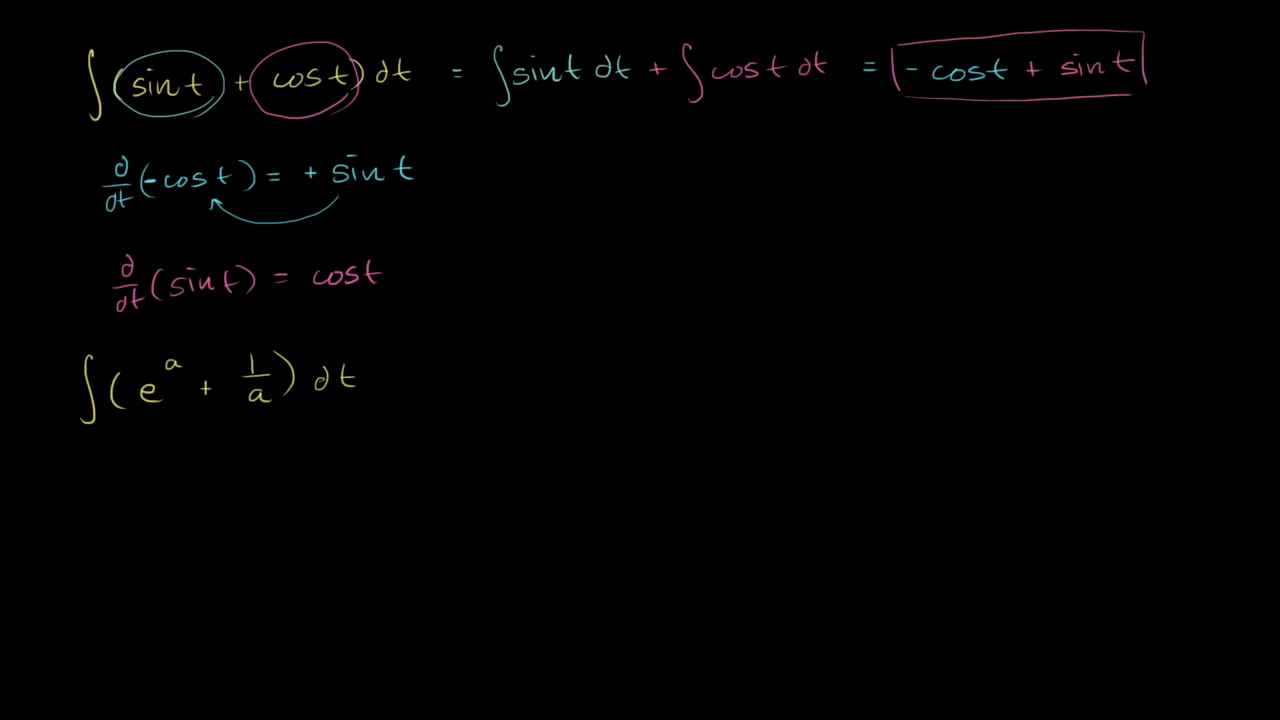 ∫(sin t + cos t) dt = ∫sin t dt + ∫cos t dt = - cos t + sin t
d/dt (-cos t) = + sin t
d/dt (sin t) = cos t
∫(e^a + 1/a) dt